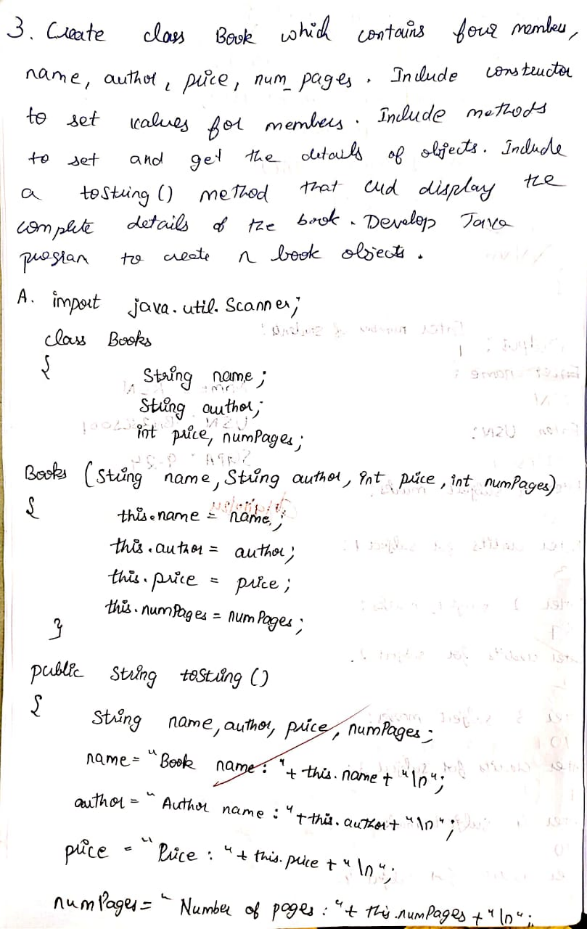 3. Create class Book which contains four members,
name, author, price, num_pages. Include constructor
to set values for members. Include methods
to set and get the details of objects. Include
a toString () method that cud display the
complete details of the book. Develop Java
program to create n book objects.
A. import java.util.Scanner;
class Books
{
String name;
String author;
int price, numPages;
Books (String name, String author, int price, int numPages)
{
this.name = name;
this.author = author;
this.price = price;
this.numPages = numPages;
}
public String toString ()
{
String name, author, price, numPages;
name = "Book name: "+ this.name + "\n";
author = "Author name : "+this.author+ "\n";
price = "Price : "+ this.price + "\n";
numPages = "Number of pages : "+ this.numPages + "\n";